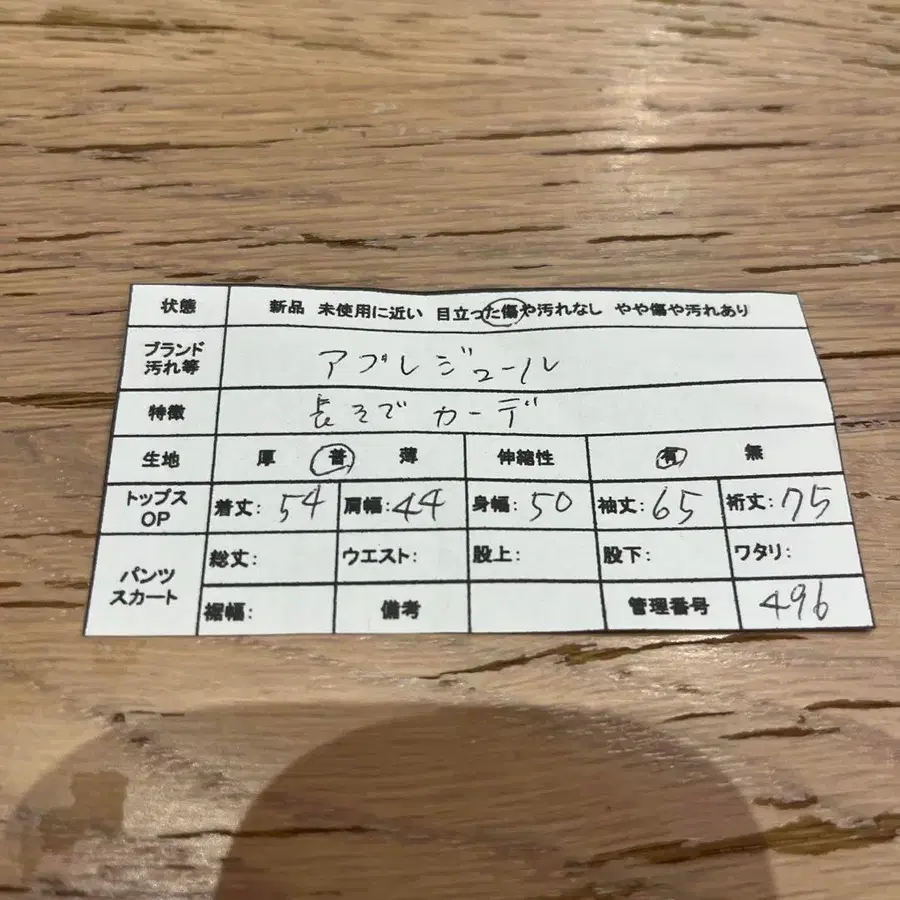 状態 新品 未使用に近い 目立った傷や汚れなし やや傷や汚れあり
ブランド 汚れ等 アプレジュール
特徴 長そでカーデ
生地 厚 普 薄 伸縮性 有 無
トップス OP 着丈: 54 肩幅: 44 身幅: 50 袖丈: 65 裄丈: 75
パンツ スカート 総丈: ウエスト: 股上: 股下: ワタリ:
裾幅: 備考 管理番号 496